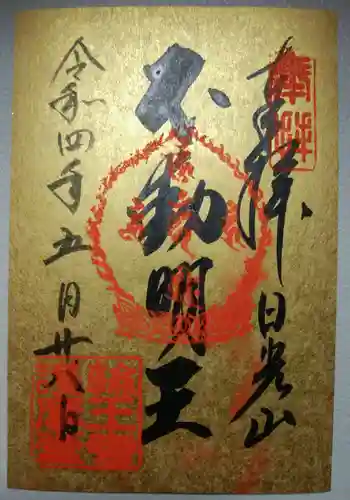 奉拝
日光山
不動明王
令和四年五月廿八日